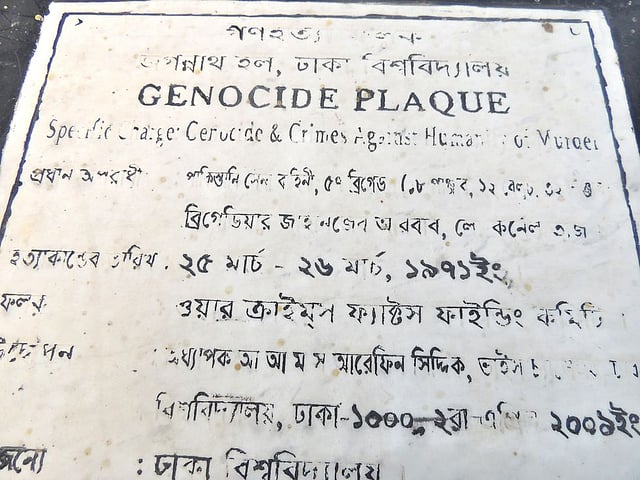 গণহত্যা ফলক
জগন্নাথ হল, ঢাকা বিশ্ববিদ্যালয়
GENOCIDE PLAQUE
Specific Charge: Genocide & Crimes Against Humanity of Murder
প্রধান অপরাধী পাকিস্তানি সেনা বাহিনী, ৫৭ ব্রিগেড
ব্রিগেডিয়ার জাহানজেব আরবাব, লে কর্নেল তাজ
হত্যাকান্ডের তারিখ : ২৫ মার্চ - ২৬ মার্চ, ১৯৭১ইং
ফলক ওয়ার ক্রাইমস ফ্যাক্টস ফাইন্ডিং কমিটি
: অধ্যাপক আ আ ম স আরেফিন সিদ্দিক, ভাইস
বিশ্ববিদ্যালয়, ঢাকা-১০০০, ২রা এপ্রিল ২০০৯ইং
: ঢাকা বিশ্ববিদ্যালয়